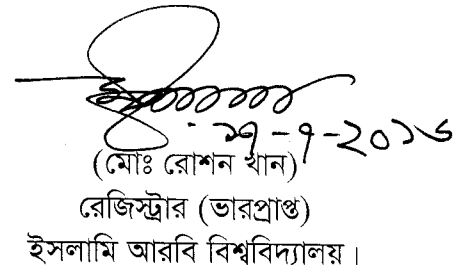 ২৭-৭-২০১৬
(মোঃ রোশন খান)
রেজিস্ট্রার (ভারপ্রাপ্ত)
ইসলামি আরবি বিশ্ববিদ্যালয়।